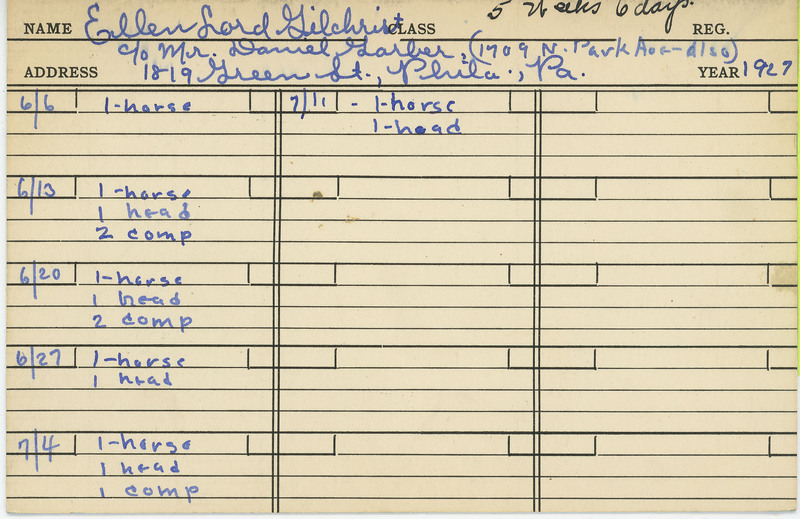 5 Weeks 6 days.
NAME Ellen Lord Gilchrist CLASS REG.
c/o Mr. Daniel Garber, (1709 N. Park Ave-also)
ADDRESS 1819 Green St., Phila., Pa. YEAR 1927
6/6 1-horse
6/13 1-horse
1 head
2 comp
6/20 1-horse
1 head
2 comp
6/27 1-horse
1 head
7/4 1-horse
1 head
1 comp
7/11 - 1-horse
1-head